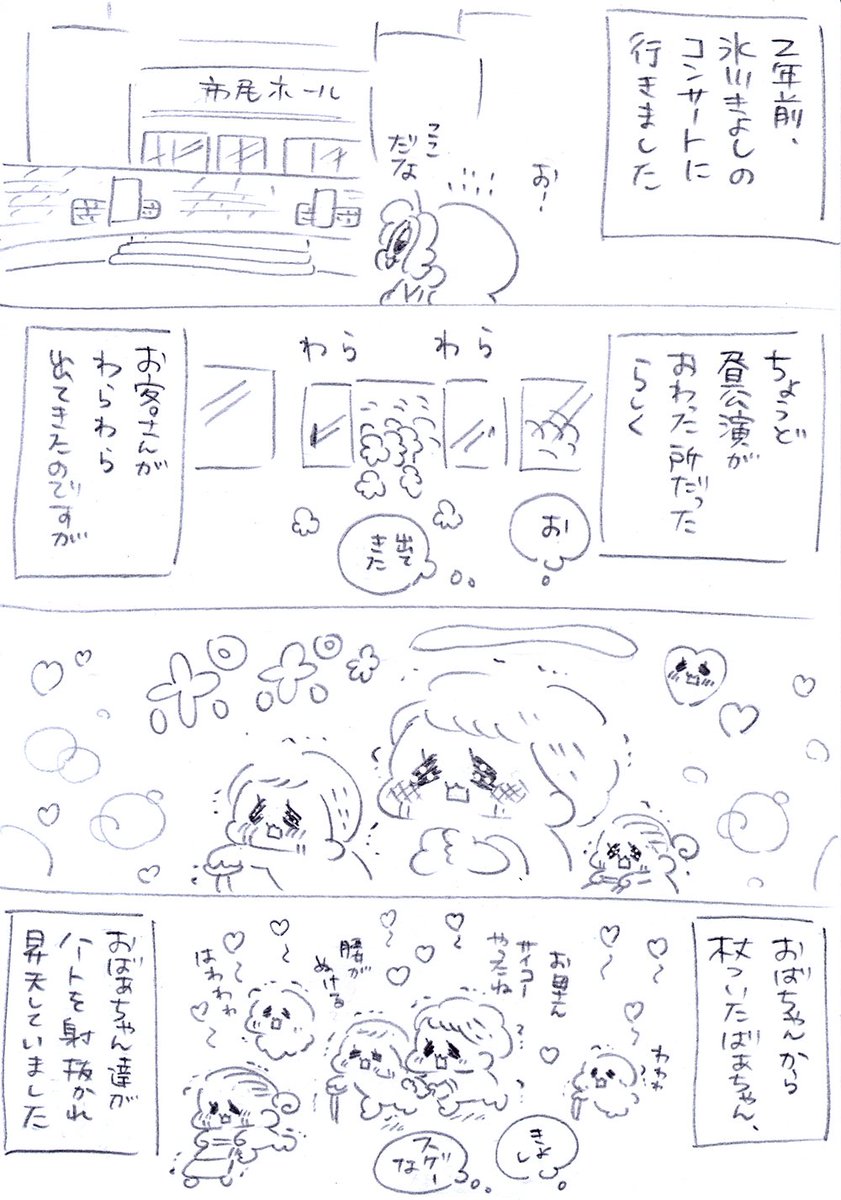 2年前、
氷川きよしの
コンサートに
行きました
お!
ここ
だな
市尾ホール
ちょうど
昼公演が
おわった所だった
らしく
わら
わら
お
出て
きた
お客さんが
わらわら
出てきたのですが
おばちゃんから
杖ついたばぁちゃん、
わわわ
お母さん
サイコー
やったね
腰が
ぬける
はわわわ
きよ
し
スゲー
な
おばぁちゃん達が
ハートを射抜かれ
昇天していました